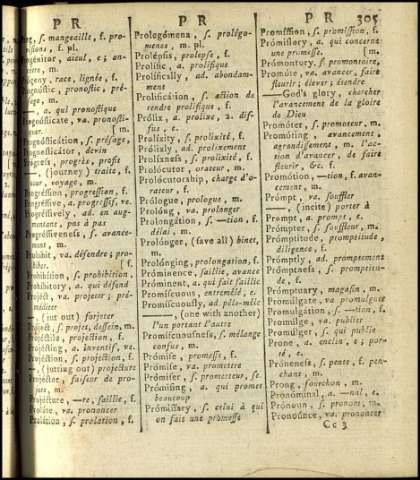 P R
P R
P R 305
s. mangeaille, f. pro-
visions, f. pl.
ancêtre, m.
race, lignée, f.
pronostic, pré-
sage, m.
a. qui pronostique
va. pronosti-
quer. [m.
Prognostication, s. présage,
devin
Progress, progrès, profit
—, (journey) traite, f.
tour, voyage, m.
Progression, progression, f.
Progressive, a. progressif, ve.
Progressively, ad. en aug-
mentant, pas à pas
Progressiveness, s. avance-
ment, m.
Prohibit, va. défendre; pro-
hiber. [f.
Prohibition, s. prohibition,
Prohibitory, a. qui défend
Project, va. projeter; pré-
méditer
—, (jut out) forjeter
Project, s. projet, dessein, m.
Projectile, projection, f.
Projecting, a. inventif, ve.
Projection, s. projection, f.
—, (jutting out) projecture
Projector, faiseur de pro-
jets, m.
Projecture, —re, saillie, f.
va. prononcer
Prolation, s. prolation, f.
Prolegómena, s. prolégo-
menes, m. pl.
Prolépsis, prolepse, f.
Prolífic, a. prolifique
Prolífically, ad. abondam-
ment
Prolificátion, s. action de
rendre prolifique, f.
Prólix, a. prolixe, 2. dif-
fus, e.
Prolíxity, s. prolixité, f.
Prolíxly, ad. prolixement
Prolíxness, s. prolixité, f.
Prolocútor, orateur, m.
Prolocútorship, charge d'o-
rateur, f.
Prólogue, prologue, m.
Prolóng, va. prolonger
Prolongátion, s. —tion, f.
délai, m.
Prolónger, (save all) binet,
m.
Prolónging, prolongation, f.
Próminence, saillie, avance
Próminent, a. qui fait saillie
Promíscuous, entremêlé, e.
Promíscuously, ad. pêle-mêle
—, (one with another)
l'un portant l'autre
Promíscuousness, s. mélange
confus, m.
Prómise, promesse, f.
Prómise, va. promettre
Prómiser, s. prometteur, se.
Prómising, a. qui promet
beaucoup
Prómissary, s. celui à qui
on fait une promesse
Promíssion, s. promission, f.
Prómissory, a. qui concerne
une promesse. [m.
Prómontory, s. promontoire,
Promóte, va. avancer, faire
fleurir; élever; étendre
—God's glory, chercher
l'avancement de la gloire
de Dieu
Promóter, s. promoteur, m.
Promóting, avancement,
agrandissement, m. l'ac-
tion d'avancer, de faire
fleurir, &c. f.
Promótion, —tion, f. avan-
cement, m.
Prómpt, va. souffler
—, (incite) porter à
Prompt, a. prompt, e.
Prómpter, s. souffleur, m.
Prómptitude, promptitude,
diligence, f.
Prómptly, ad. promptement
Prómptness, s. promptitu-
de, f.
Prómptuary, magasin, m.
Promúlgate, va promulguer
Promulgátion, s. —tion, f.
Promúlge, va. publier
Promúlger, s. qui publie
Prone, a. enclin, e; por-
té, e.
Próneness, s. pente, f. pen-
chant, m.
Prong, fourchon, m.
Pronóminal, a. —nal, e.
Prónoun, s. pronom, m.
Pronoúnce, va. prononcer
Cc 3